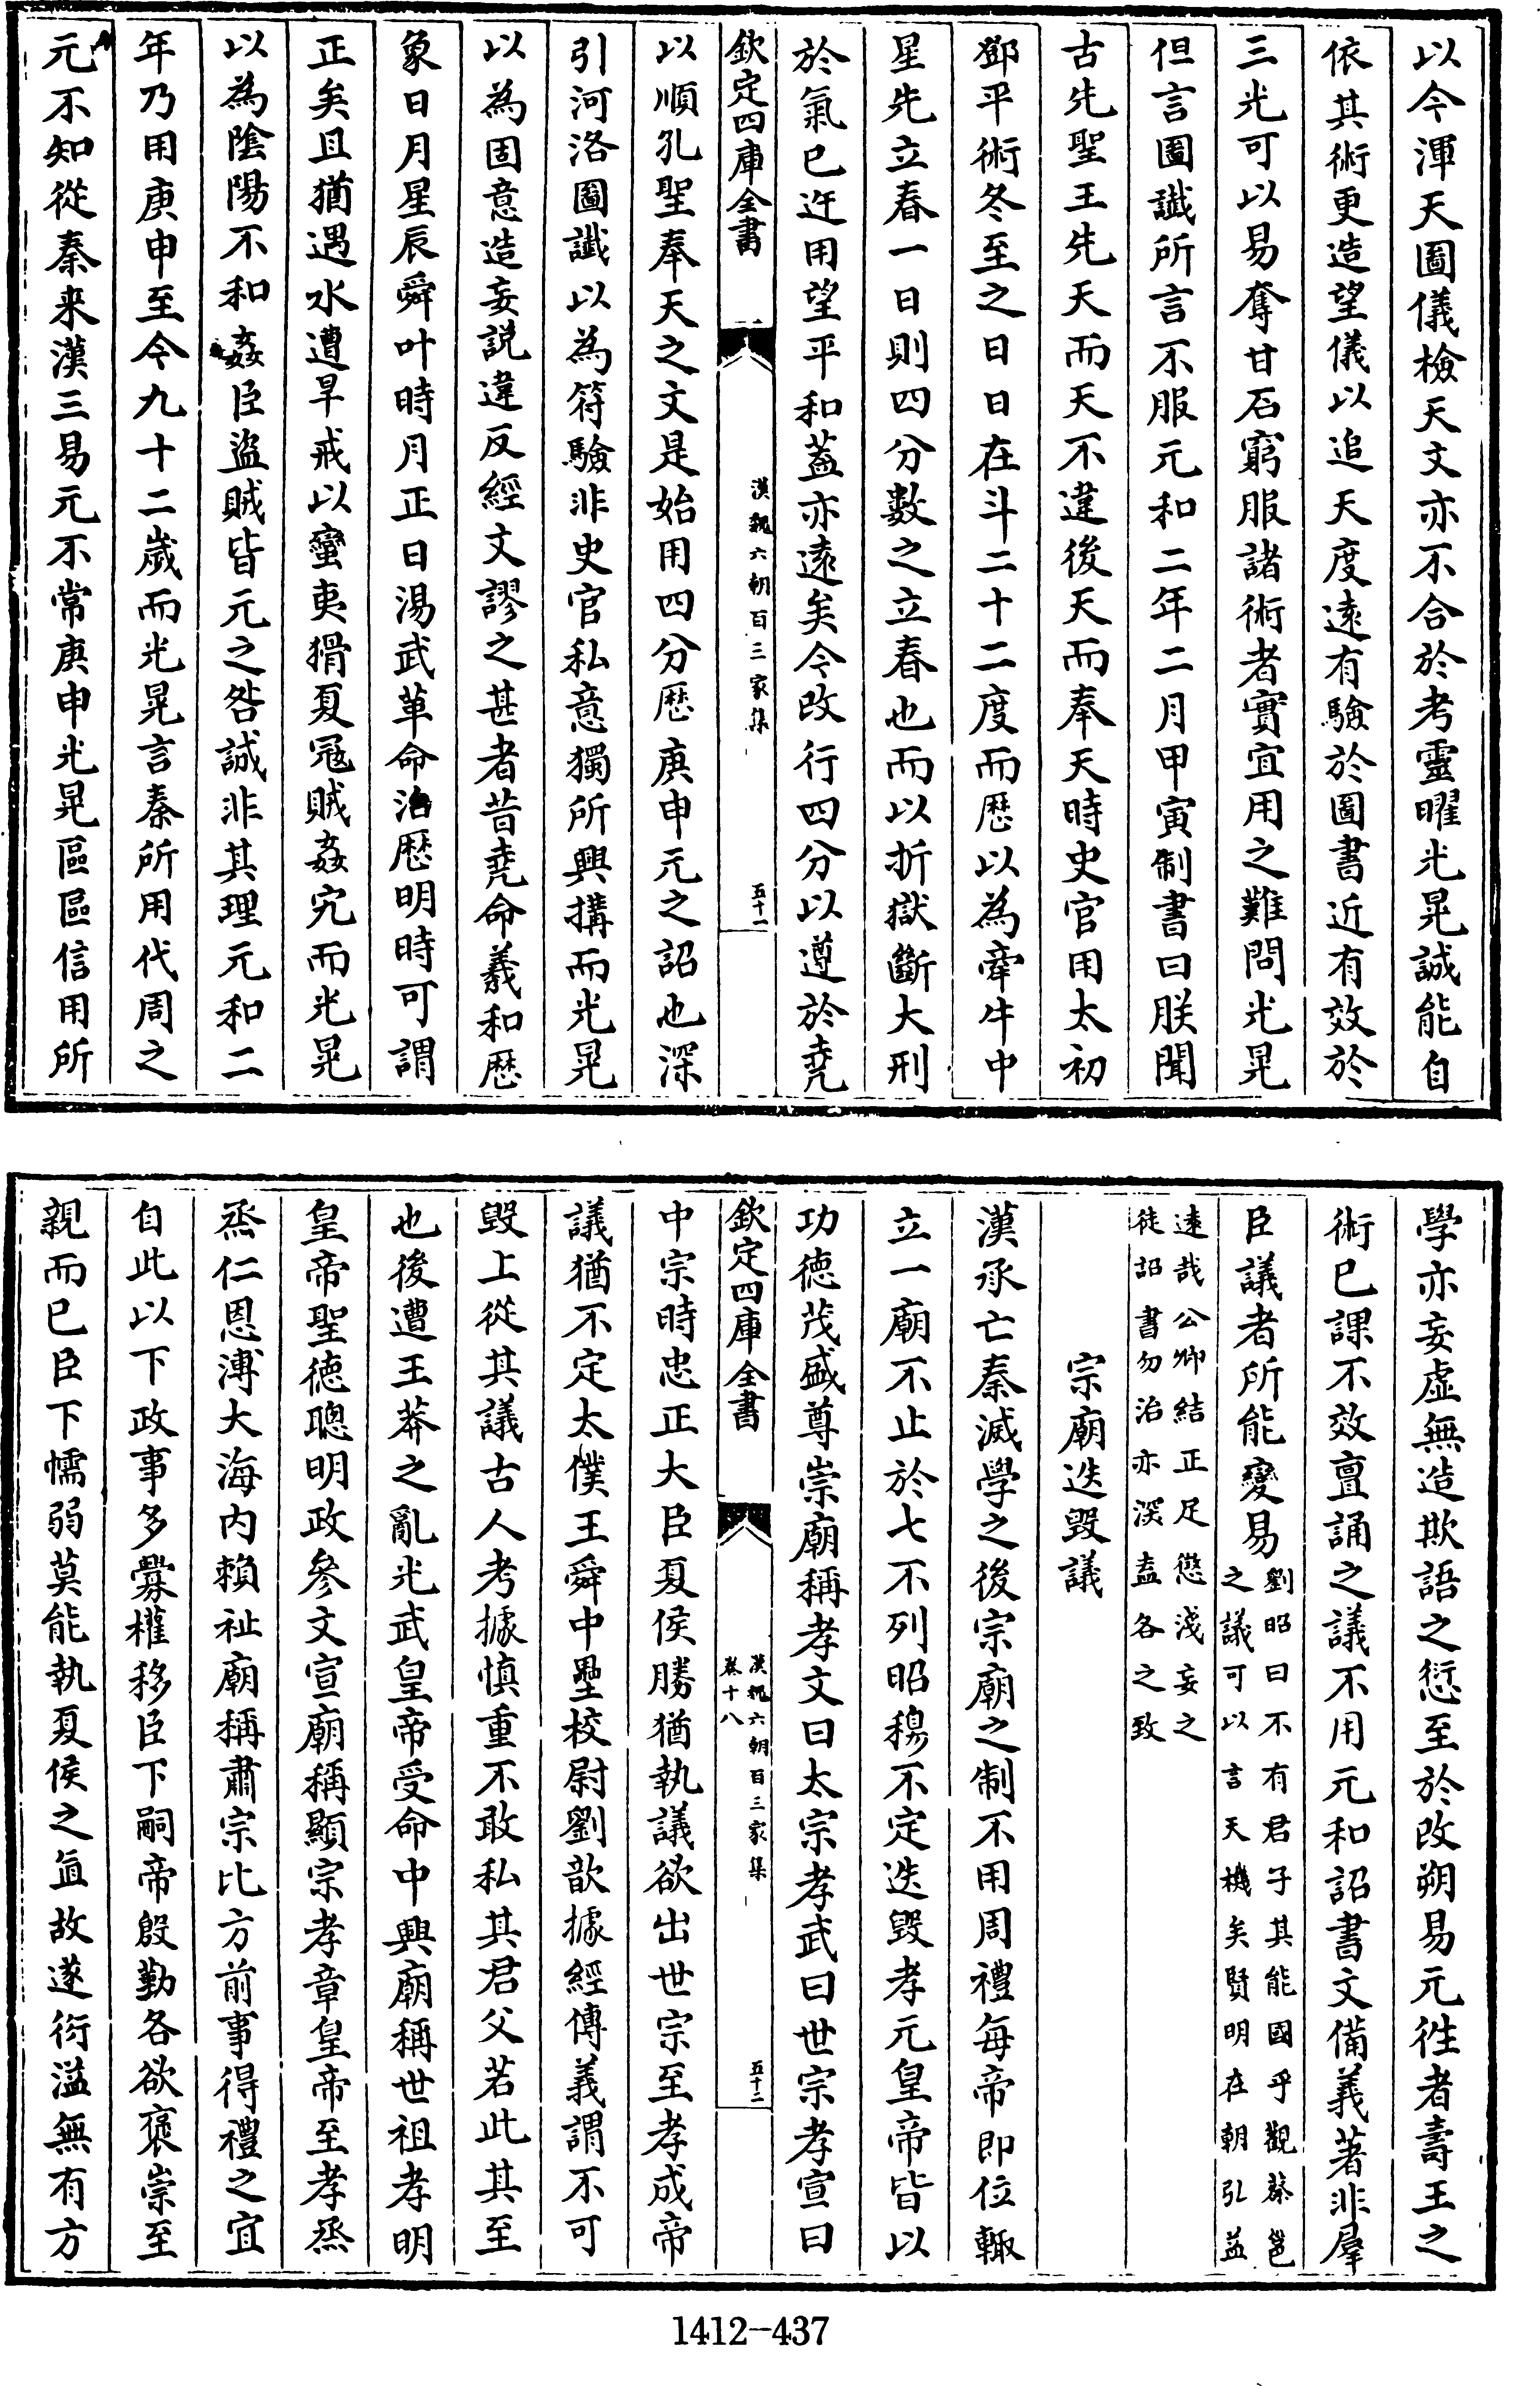 以今渾天圖儀檢天文亦不合於考靈曜光晃誠能自
依其術更造望儀以追天度遠有驗於圖書近有效於
三光可以易奪甘石窮服諸術者實宜用之難問光晃
但言圖讖所言不服元和二年二月甲寅制書曰朕聞
古先聖王先天而天不違後天而奉天天時史官用太初
鄧平術冬至之日日在斗二十二度而厯以為牽牛中
星先立春一日則四分數之立春也而以折獄斷大刑
於氣已迕用望平和葢亦遠矣今改行四分以遵於堯
欽定四庫全書
漢魏六朝百三家集
五十一
以順孔聖奉天之文是始用四分厯庚申元之詔也深
引河洛圖讖以為符驗非史官私意獨所興搆而光晃
以為固意造妄説違反經文謬之甚者昔堯命羲和厯
象日月星辰舜叶時月正日湯武革命治厯明時可謂
正矣且猶遇水遭旱戒以蠻夷猾夏冦賊姦宄而光晃
以為陰陽不和姦臣盜賊皆元之咎誠非其理元和二
年乃用庚申至今九十二嵗而光晃言秦所用代周之
元不知從秦来漢三易元不常庚申光晃區區信用所
學亦妄虛無造欺語之愆至於改朔易元徃者壽王之
術已課不效亶誦之議不用元和詔書文備義著非羣
臣議者所能變易劉昭曰不有君子其能國乎觀蔡邕
之議可以言天機矣賢明在朝弘益
遠哉公卿結正足懲淺妄之
徒詔書勿治亦深盍各之致
宗廟迭毀議
漢承亡秦滅學之後宗廟之制不用周禮每帝即位輙
立一廟不止於七不列昭穆不定迭毀孝元皇帝皆以
功德茂盛尊崇廟稱孝文曰太宗孝武曰世宗孝宣曰
欽定四庫全書
漢魏六朝百三家集
卷十八
五十二
中宗時忠正大臣夏侯勝猶執議欲出世宗至孝成帝
議猶不定太僕王舜中壘校尉劉歆據經傳義謂不可
毀上從其議古人考據慎重不敢私其君父若此其至
也後遭王莽之亂光武皇帝受命中興廟稱世祖孝明
皇帝聖德聰明政參文宣廟稱顯宗孝章皇帝至孝烝
烝仁恩溥大海内賴祉廟稱肅宗比方前事得禮之宜
自此以下政事多釁權移臣下嗣帝殷勤各欲褒崇至
親而已臣下懦弱莫能執夏侯之直故遂衍溢無有方
1412-437